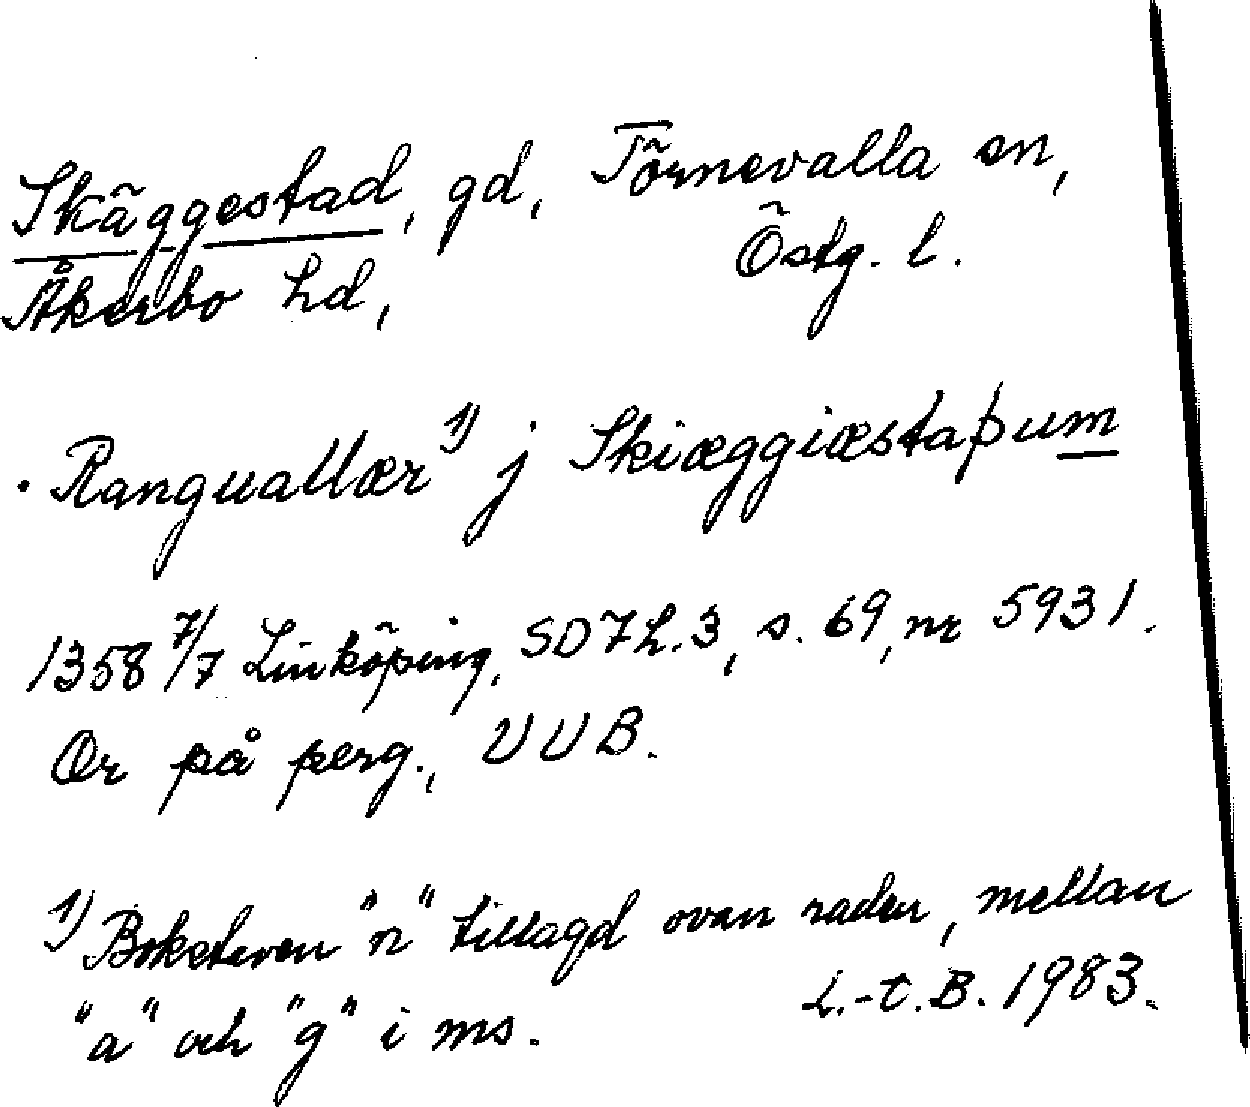 Skäggestad, gd, Törnevalla sn,
Åkerbo hd, Östg. l.
. Ranguallær 1) j Skiæggiæstaþum
1358 7/7 Linköping, SD 7 h. 3, s. 69, nr 5931.
Or på perg., UUB.
1) Bokstaven "n" tillagd ovan raden, mellan
"a" och "g" i ms. L.-t. B. 1983.